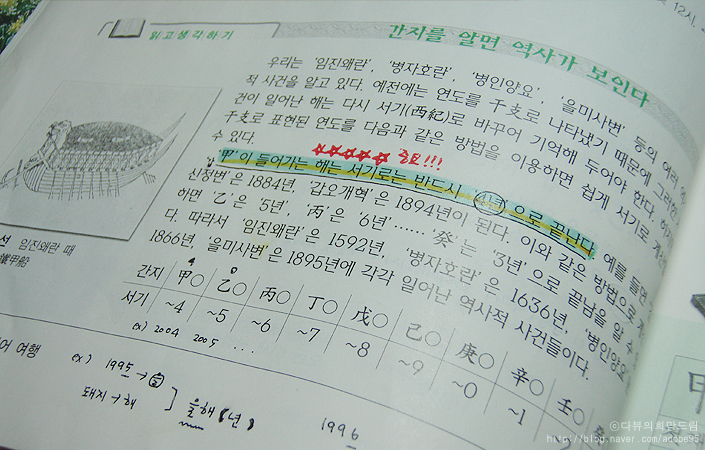 12시,
읽고생각하기
간지를 알면 역사가 보인다
우리는 '임진왜란', '병자호란', '병인양요', '을미사변' 등의 여러
적 사건을 알고 있다. 예전에는 연도를 干支로 나타냈기 때문에 그러한
건이 일어난 해는 다시 서기(西紀)로 바꾸어 기억해 두어야 한다.
干支로 표현된 연도를 다음과 같은 방법을 이용하면 쉽게 서기로
수 있다
☆☆☆☆☆ 중요!!!
'甲'이 들어가는 해는 서기로는 반드시 '4년'으로 끝난다. 예를 들면
신정변'은 1884년, '갑오개혁'은 1894년이 된다. 이와 같은 방법으로
하면 '乙'은 '5년', '丙'은 '6년'…… '癸'는 '3년'으로 끝남을 알 수
다. 따라서 '임진왜란'은 1592년, '병자호란'은 1636년, '병인양요
1866년, '을미사변'은 1895년에 각각 일어난 역사적 사건들이다.
선 임진왜란 때
甲船
간지 甲○ 乙○ 丙○ 丁○ 戊○ 己○ 庚○ 辛○ 壬○
서기 ~4 ~5 ~6 ~7 ~8 ~9 ~0 ~1
ex) 2004 2005 ...
어 여행
ex) 1995 →
돼지 → 해
을해(년)
1996
ⓒ다뷰의희망드림
http://blog.naver.com/accbe95